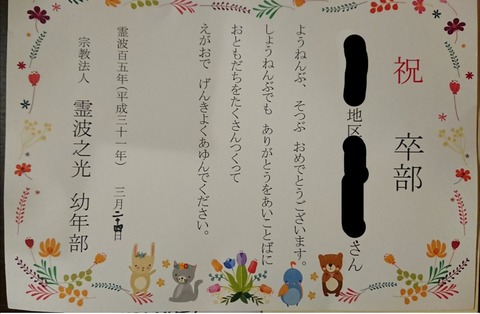 祝 卒部
地区 さん
ようねんぶ、そつぶ おめでとうございます。
しょうねんぶでも ありがとうをあいことばに
おともだちをたくさんつくって
えがおで げんきよくあゆんでください。
霊波百五年(平成三十一年) 三月二十四日
宗教法人 霊波之光 幼年部